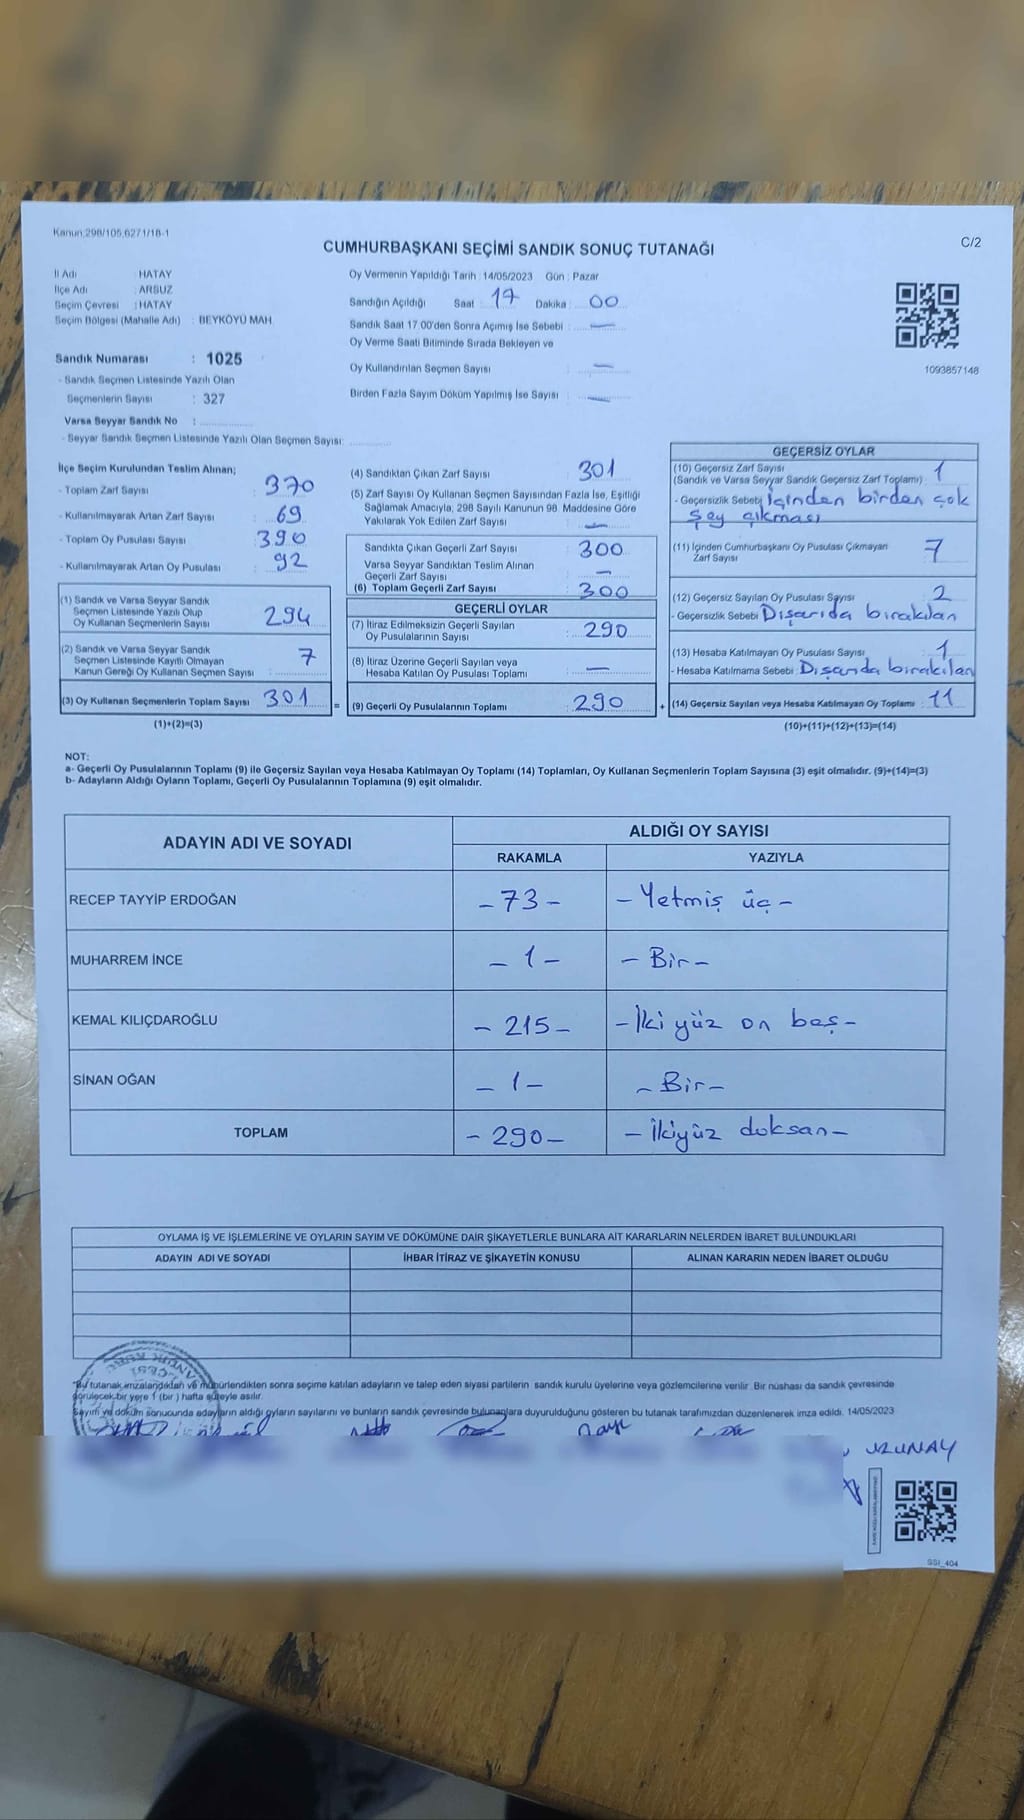 Kanun:298/105,6271/18-1
C/2
CUMHURBAŞKANI SEÇİMİ SANDIK SONUÇ TUTANAĞI
İl Adı : HATAY
İlçe Adı : ARSUZ
Seçim Çevresi : HATAY
Seçim Bölgesi (Mahalle Adı) : BEYKÖYÜ MAH.
Oy Vermenin Yapıldığı Tarih : 14/05/2023 Gün : Pazar
Sandığın Açıldığı Saat : 17 Dakika : 00
Sandık Saat 17.00'den Sonra Açımış İse Sebebi : —
Oy Verme Saati Bitiminde Sırada Bekleyen ve
Oy Kullandırılan Seçmen Sayısı : —
Birden Fazla Sayım Döküm Yapılmış İse Sayısı : —
1093857148
Sandık Numarası : 1025
- Sandık Seçmen Listesinde Yazılı Olan
Seçmenlerin Sayısı : 327
Varsa Seyyar Sandık No :
- Seyyar Sandık Seçmen Listesinde Yazılı Olan Seçmen Sayısı:
İlçe Seçim Kurulundan Teslim Alınan;
- Toplam Zarf Sayısı : 370
- Kullanılmayarak Artan Zarf Sayısı : 69
- Toplam Oy Pusulası Sayısı : 390
- Kullanılmayarak Artan Oy Pusulası : 92
(1) Sandık ve Varsa Seyyar Sandık
Seçmen Listesinde Yazılı Olup
Oy Kullanan Seçmenlerin Sayısı : 294
(2) Sandık ve Varsa Seyyar Sandık
Seçmen Listesinde Kayıtlı Olmayan
Kanun Gereği Oy Kullanan Seçmen Sayısı : 7
(3) Oy Kullanan Seçmenlerin Toplam Sayısı : 301
(1)+(2)=(3)
(4) Sandıktan Çıkan Zarf Sayısı : 301
(5) Zarf Sayısı Oy Kullanan Seçmen Sayısından Fazla İse, Eşitliği
Sağlamak Amacıyla, 298 Sayılı Kanunun 98. Maddesine Göre
Yakılarak Yok Edilen Zarf Sayısı : —
Sandıkta Çıkan Geçerli Zarf Sayısı : 300
Varsa Seyyar Sandıktan Teslim Alınan
Geçerli Zarf Sayısı : —
(6) Toplam Geçerli Zarf Sayısı : 300
GEÇERLİ OYLAR
(7) İtiraz Edilmeksizin Geçerli Sayılan
Oy Pusulalarının Sayısı : 290
(8) İtiraz Üzerine Geçerli Sayılan veya
Hesaba Katılan Oy Pusulası Toplamı : —
= (9) Geçerli Oy Pusulalarının Toplamı : 290
GEÇERSİZ OYLAR
(10) Geçersiz Zarf Sayısı
(Sandık ve Varsa Seyyar Sandık Geçersiz Zarf Toplamı) : 1
- Geçersizlik Sebebi : İçinden birden çok
şey çıkması
(11) İçinden Cumhurbaşkanı Oy Pusulası Çıkmayan
Zarf Sayısı 7
(12) Geçersiz Sayılan Oy Pusulası Sayısı : 2
- Geçersizlik Sebebi : Dışarıda bırakılan
(13) Hesaba Katılmayan Oy Pusulası Sayısı : 1
- Hesaba Katılmama Sebebi : Dışarıda bırakılan
+ (14) Geçersiz Sayılan veya Hesaba Katılmayan Oy Toplamı : 11
(10)+(11)+(12)+(13)=(14)
NOT:
a- Geçerli Oy Pusulalarının Toplamı (9) ile Geçersiz Sayılan veya Hesaba Katılmayan Oy Toplamı (14) Toplamları, Oy Kullanan Seçmenlerin Toplam Sayısına (3) eşit olmalıdır. (9)+(14)=(3)
b- Adayların Aldığı Oyların Toplamı, Geçerli Oy Pusulalarının Toplamına (9) eşit olmalıdır.
ADAYIN ADI VE SOYADI
ALDIĞI OY SAYISI
RAKAMLA YAZIYLA
RECEP TAYYİP ERDOĞAN - 73 - - Yetmiş üç -
MUHARREM İNCE - 1 - - Bir -
KEMAL KILIÇDAROĞLU - 215 - - İki yüz on beş -
SİNAN OĞAN - 1 - - Bir -
TOPLAM - 290 - - İkiyüz doksan -
OYLAMA İŞ VE İŞLEMLERİNE VE OYLARIN SAYIM VE DÖKÜMÜNE DAİR ŞİKAYETLERLE BUNLARA AİT KARARLARIN NELERDEN İBARET BULUNDUKLARI
ADAYIN ADI VE SOYADI İHBAR İTİRAZ VE ŞİKAYETİN KONUSU ALINAN KARARIN NEDEN İBARET OLDUĞU
"Bu tutanak imzalandıktan ve mühürlendikten sonra seçime katılan adayların ve talep eden siyasi partilerin sandık kurulu üyelerine veya gözlemcilerine verilir. Bir nüshası da sandık çevresinde
görülecek bir yere 1 (bir ) hafta süreyle asılır.
Sayım ve döküm sonucunda adayların aldığı oyların sayılarını ve bunların sandık çevresinde bulunanlara duyurulduğunu gösteren bu tutanak tarafımızdan düzenlenerek imza edildi. 14/05/2023
UZUNAY
SSİ_404